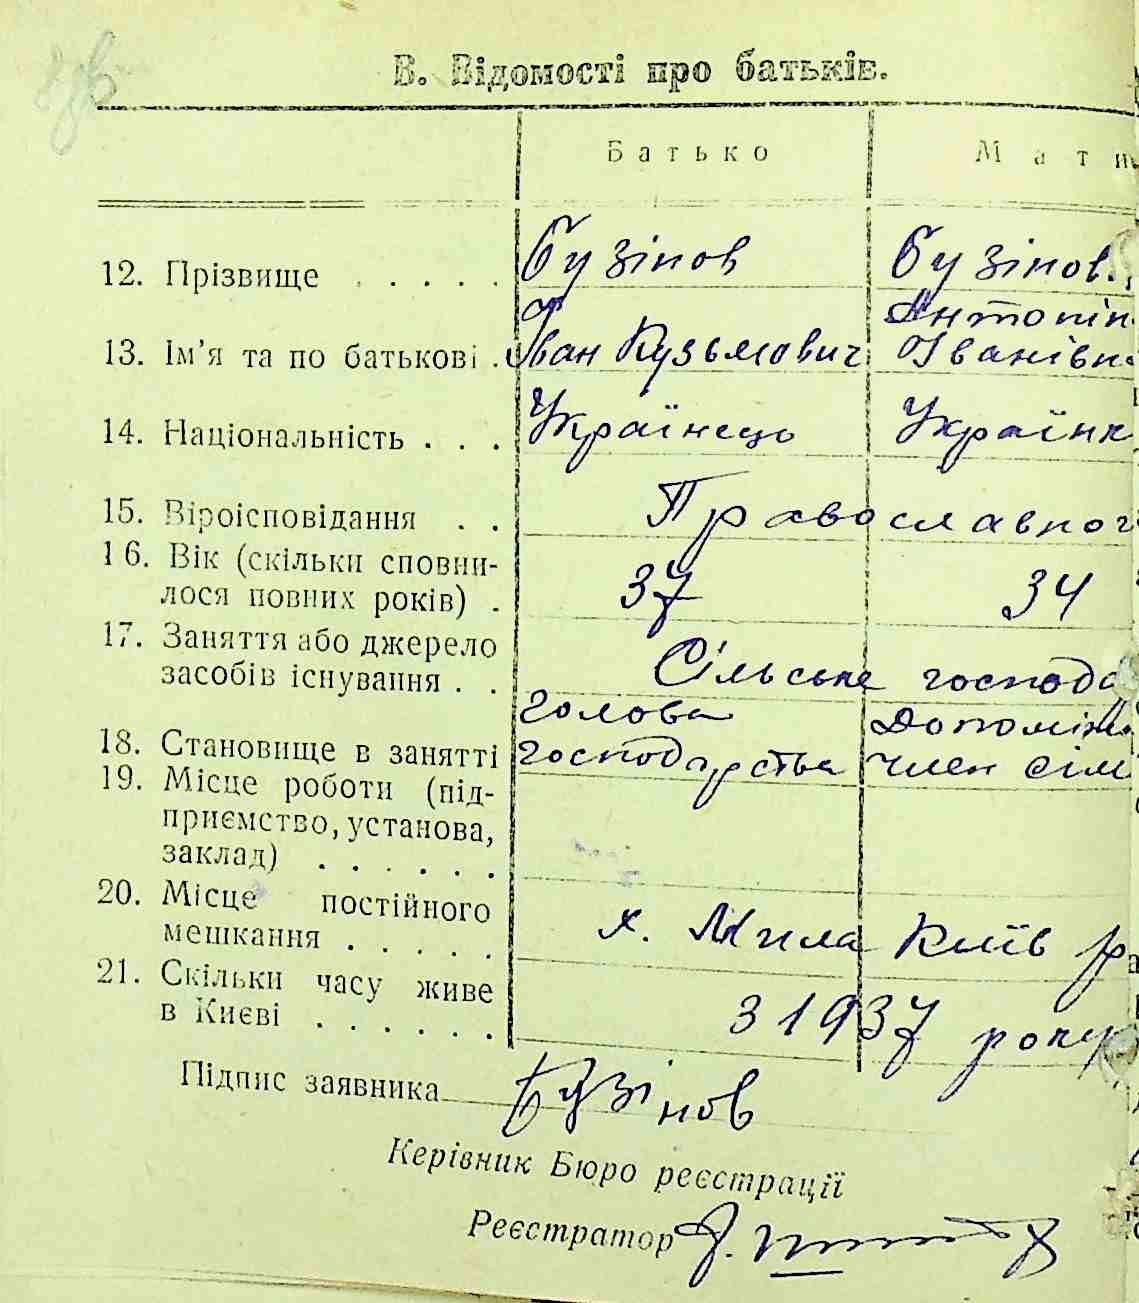 В. Відомості про батьків.
Батько Мати
12. Прізвище . . . . . Бузінов Бузінов.
Антонін
13. Ім'я та по батькові . Іван Кузьмович Іванівн
14. Національність . . . Українець Українк
15. Віроісповідання . . Православног
16. Вік (скільки сповни-
лося повних років) . 37 34
17. Заняття або джерело
засобів існування . . Сільське господа
голова Допоміж
18. Становище в занятті господарства член сім
19. Місце роботи (під-
приємство, установа,
заклад) . . . . . .
20. Місце постійного
мешкання . . . . . х. Мила Київ ра
21. Скільки часу живе
в Києві . . . . . . З 1937 року
Підпис заявника Бузінов
Керівник Бюро реєстрації
Реєстратор